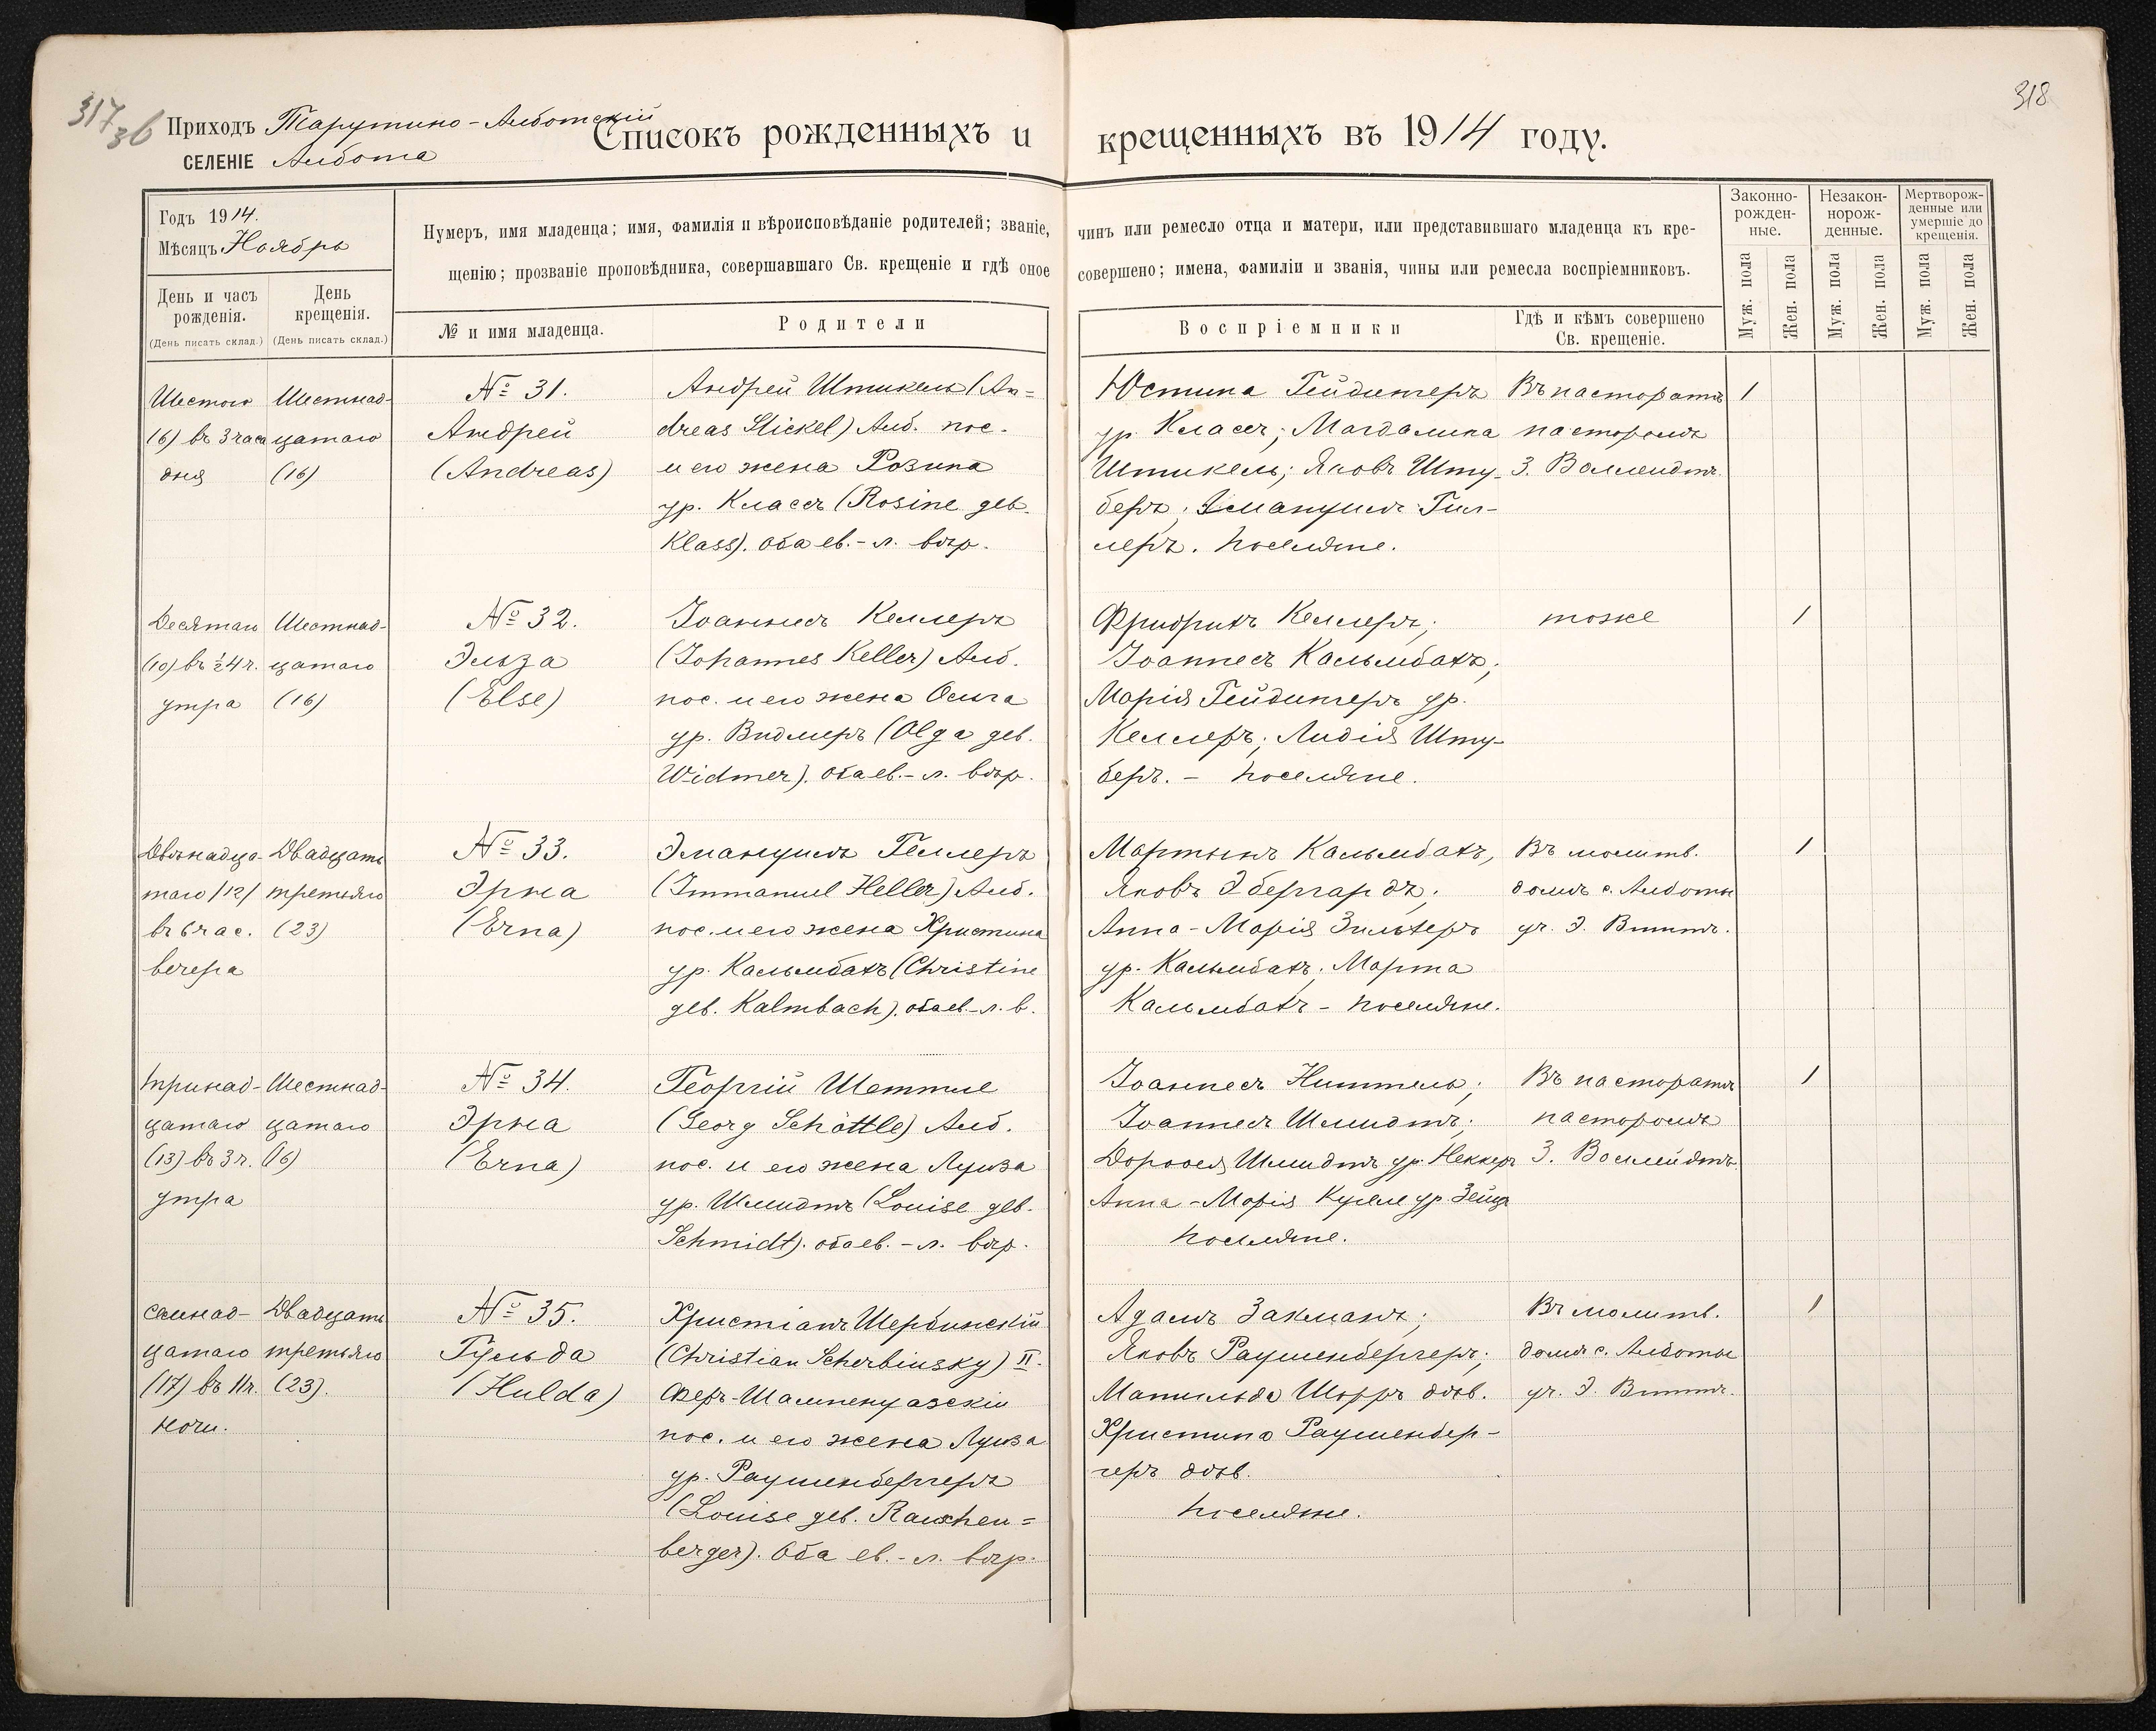 317 зб
318
Приходъ Тарутино-Алботскій
СЕЛЕНІЕ Албота
Списокъ рожденныхъ и крещенныхъ въ 1914 году.
Годъ 1914.
Мѣсяцъ Ноябрь
Нумеръ, имя младенца; имя, фамилія и вѣроисповѣданіе родителей; званіе, чинъ или ремесло отца и матери, или представившаго младенца къ кре-
щенію; прозваніе проповѣдника, совершавшаго Св. крещеніе и гдѣ оное совершено; имена, фамиліи и званія, чины или ремесла воспріемниковъ.
Законно-
рожден-
ные.
Незакон-
норож-
денные.
Мертворож-
денные или
умершіе до
крещенія.
День и часъ
рожденія.
(День писать склад.)
День
крещенія.
(День писать склад.)
№ и имя младенца.
Родители
Воспріемники
Гдѣ и кѣмъ совершено
Св. крещеніе.
Муж. пола
Жен. пола
Муж. пола
Жен. пола
Муж. пола
Жен. пола
Шестого
(6) въ 3 часа
дня
Шестнад-
цатаго
(16)
№ 31.
Андрей
(Andreas)
Андрей Штикель (An=
dreas Stickel) Алб. пос.
и его жена Розина
ур. Классъ (Rosine geb.
Klass). оба ев.-л. вѣр.
Юстина Гейдингеръ
ур. Классъ; Магдалина
Штикель; Яковъ Шту-
беръ; Эмануилъ Гил-
леръ. поселяне.
Въ пасторатѣ
пасторомъ
З. Волленднъ.
1
Десятаго
(10) въ ½4 ч.
утра
Шестнад-
цатаго
(16)
№ 32.
Эльза
(Else)
Іоаннесъ Келлеръ
(Johannes Keller) Алб.
пос. и его жена Ольга
ур. Видмеръ (Olga geb.
Widmer). оба ев.-л. вѣр.
Фридрихъ Келлеръ;
Іоаннесъ Кальмбахъ;
Марія Гейдингеръ ур.
Келлеръ; Лидія Шту-
беръ. - поселяне.
тоже
1
Двѣнадца-
таго (12)
въ 6 час.
вечера
Двадцать
третьяго
(23)
№ 33.
Эрна
(Erna)
Эмануилъ Геллеръ
(Immanuel Heller) Алб.
пос. и его жена Христина
ур. Кальмбахъ (Christine
geb. Kalmbach). оба ев.-л. в.
Мартынъ Кальмбахъ,
Яковъ Эбергардъ;
Анна-Марія Зильхеръ
ур. Кальмбахъ; Марта
Кальмбахъ - поселяне.
Въ молитв.
домѣ с. Алботы
уч. Э. Виттъ.
1
Тринад-
цатаго
(13) въ 3 ч.
утра
Шестнад-
цатаго
(16)
№ 34.
Эрна
(Erna)
Георгій Шеттле
(Georg Schöttle) Алб.
пос. и его жена Луиза
ур. Шмидтъ (Louise geb.
Schmidt). оба ев.-л. вѣр.
Іоаннесъ Ниттель;
Іоаннесъ Шмидтъ;
Доротея Шмидтъ ур. Неккеръ
Анна-Марія Куелле ур. Зейцъ
поселяне.
Въ пасторатѣ
пасторомъ
З. Воллейдтъ.
1
Семнад-
цатаго
(17) въ 11 ч.
ночи.
Двадцать
третьяго
(23).
№ 35.
Гульда
(Hulda)
Христіанъ Щербинскій
(Christian Scherbinsky) II.
Феръ-Шампенуазскій
пос. и его жена Луиза
ур. Раушенбергеръ
(Louise geb. Rauschen=
berger). Оба ев.-л. вѣр.
Адамъ Закманъ;
Яковъ Раушенбергеръ;
Матильда Шорръ дѣв.
Христина Раушенбер-
геръ дѣв.
поселяне.
Въ молитв.
домѣ с. Алботы
уч. Э. Виттъ.
1